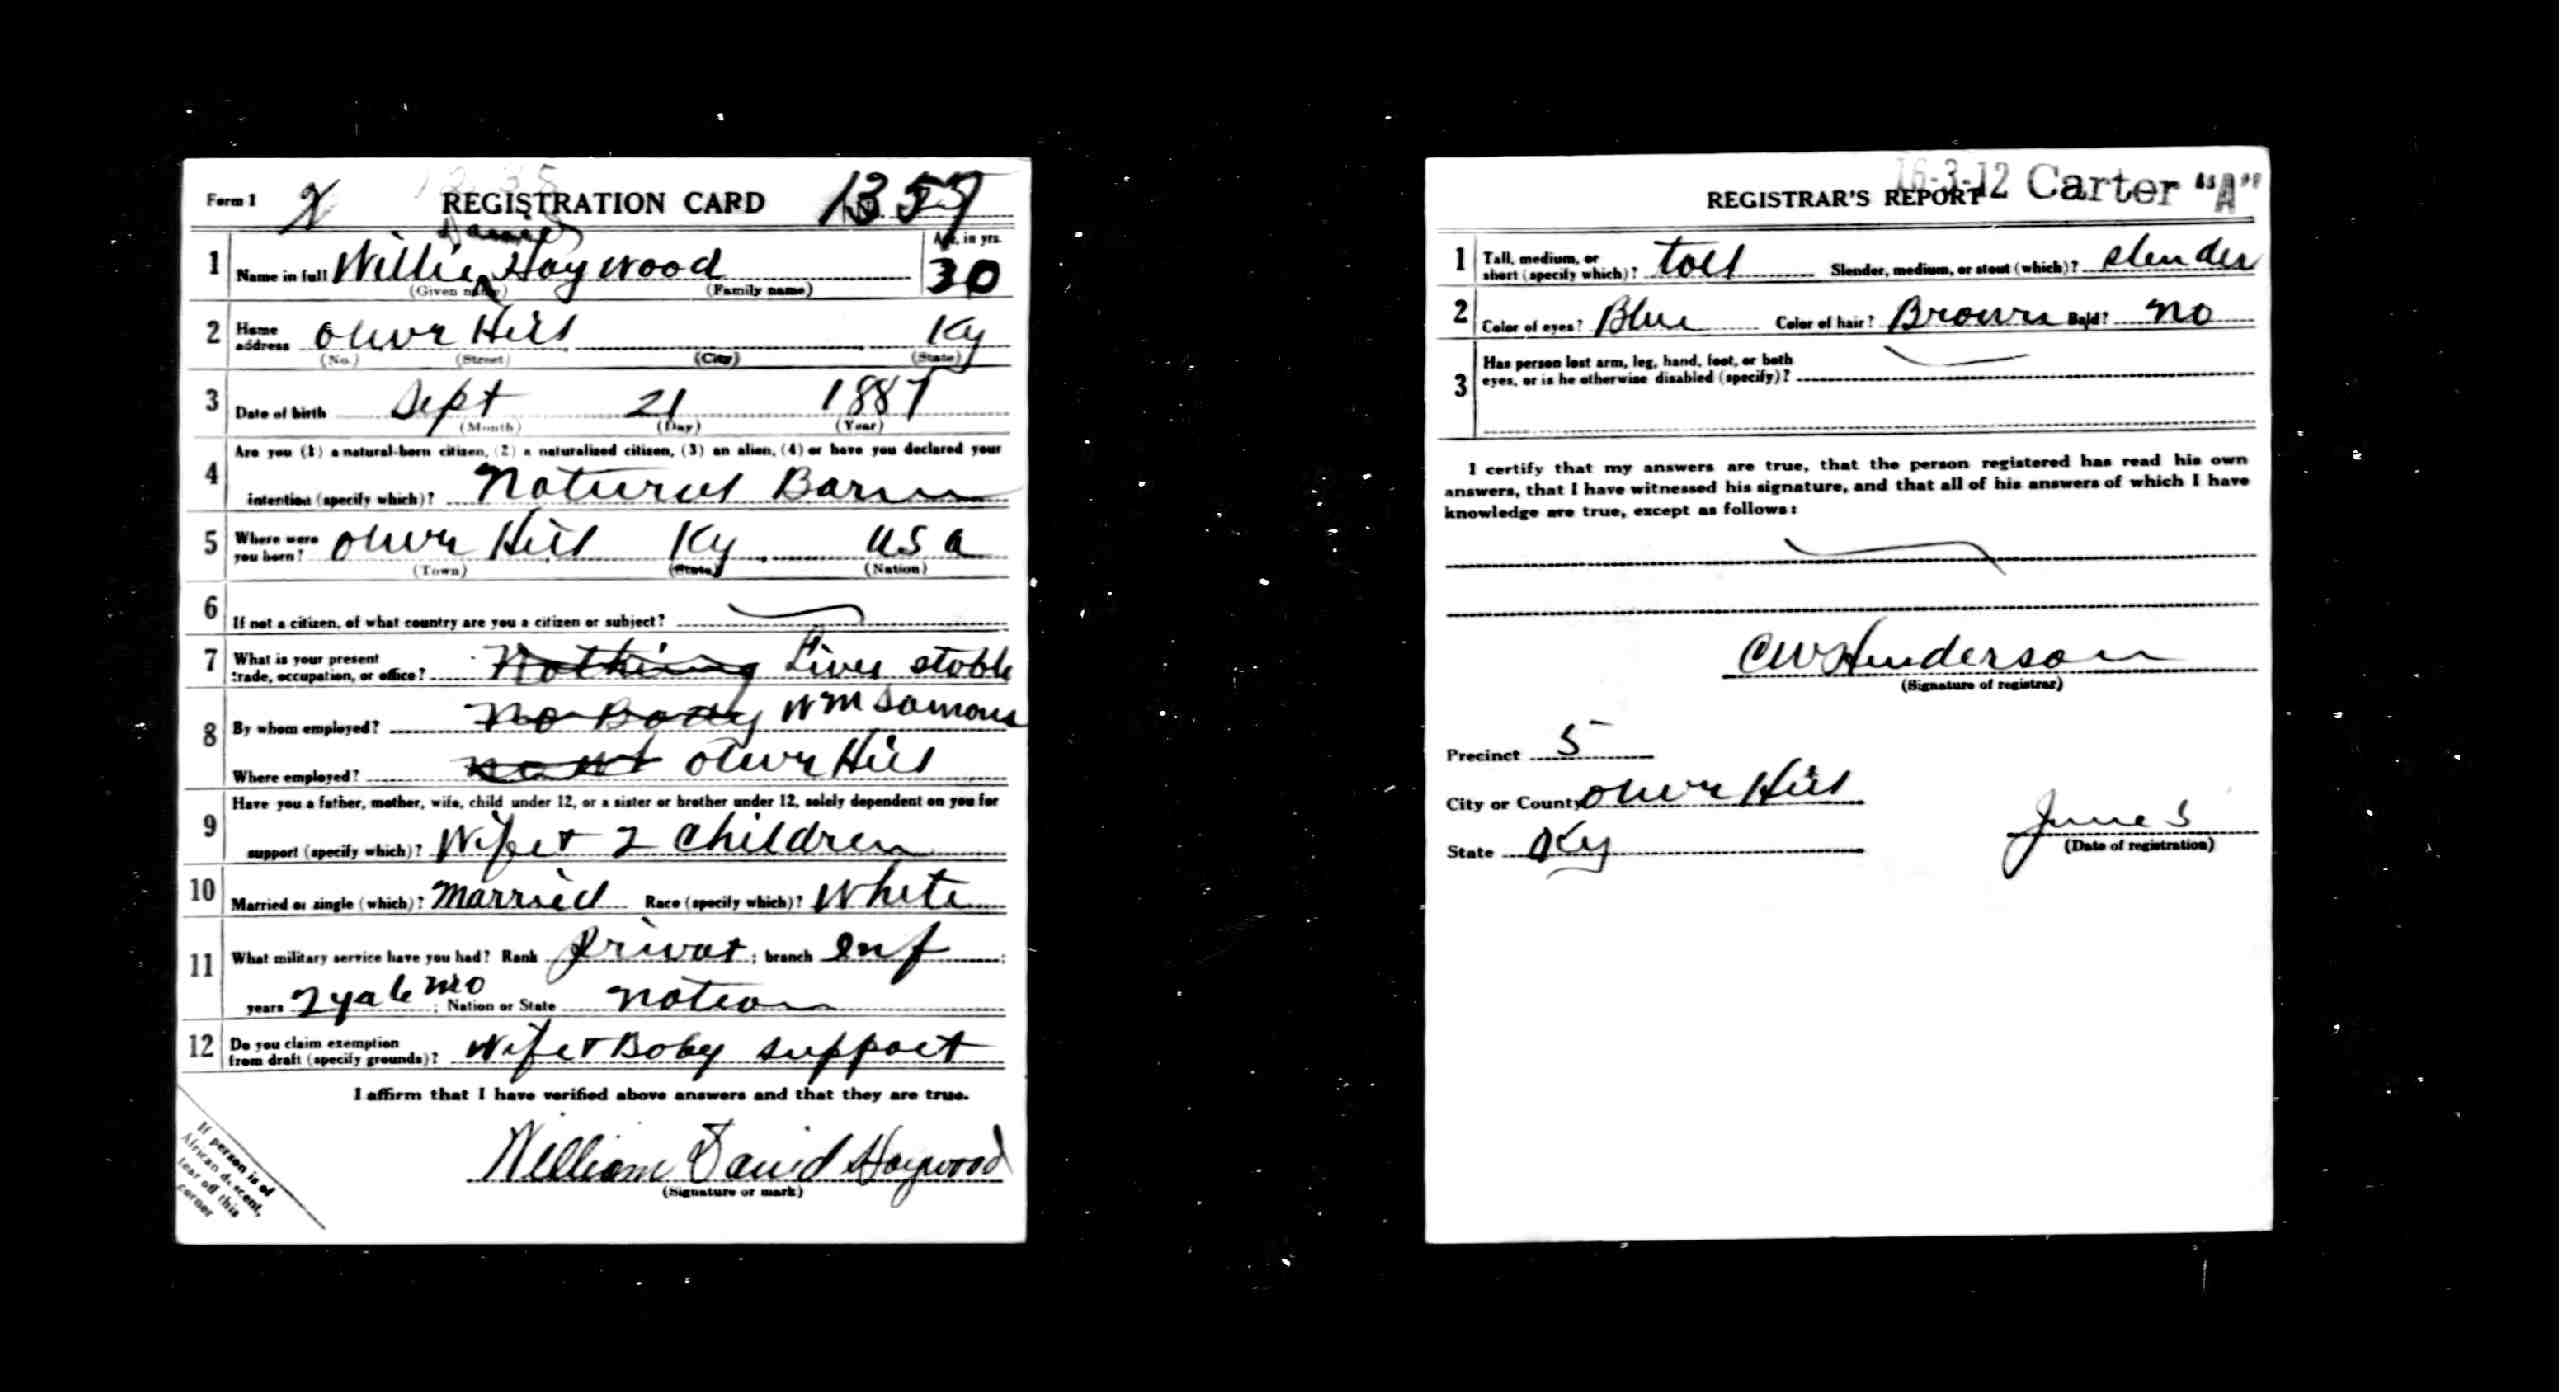 Form 1 X REGISTRATION CARD No. 1357
David
1 Name in full Willie Haywood Age, in yrs. 30
(Given name) (Family name)
2 Home address Olive Hill Ky
(No.) (Street) (City) (State)
3 Date of birth Sept 21 1887
(Month) (Day) (Year)
4 Are you (1) a natural-born citizen, (2) a naturalized citizen, (3) an alien, (4) or have you declared your
intention (specify which)? Natural Born
5 Where were you born? Olive Hill Ky USA
(Town) (State) (Nation)
6 If not a citizen, of what country are you a citizen or subject?
7 What is your present trade, occupation, or office? Nothing Livery stable
8 By whom employed? No Body Wm
Where employed? Olive Hill
9 Have you a father, mother, wife, child under 12, or a sister or brother under 12, solely dependent on you for
support (specify which)? Wife + 2 children
10 Married or single (which)? Married Race (specify which)? White
11 What military service have you had? Rank privat ; branch Inf ;
years 2 ; Nation or State Nation
12 Do you claim exemption from draft (specify grounds)? Wife + Baby support
I affirm that I have verified above answers and that they are true.
William David Haywood
(Signature or mark)
If person is of
African descent,
tear off this
corner
16-3-12 Carter "A"
REGISTRAR'S REPORT
1 Tall, medium, or short (specify which)? tall Slender, medium, or stout (which)? slender
2 Color of eyes? Blue Color of hair? Brown Bald? No
3 Has person lost arm, leg, hand, foot, or both
eyes, or is he otherwise disabled (specify)?
I certify that my answers are true, that the person registered has read his own
answers, that I have witnessed his signature, and that all of his answers of which I have
knowledge are true, except as follows:
CW Henderson
(Signature of registrar)
Precinct 5
City or County Olive Hill
State Ky
June 5
(Date of registration)